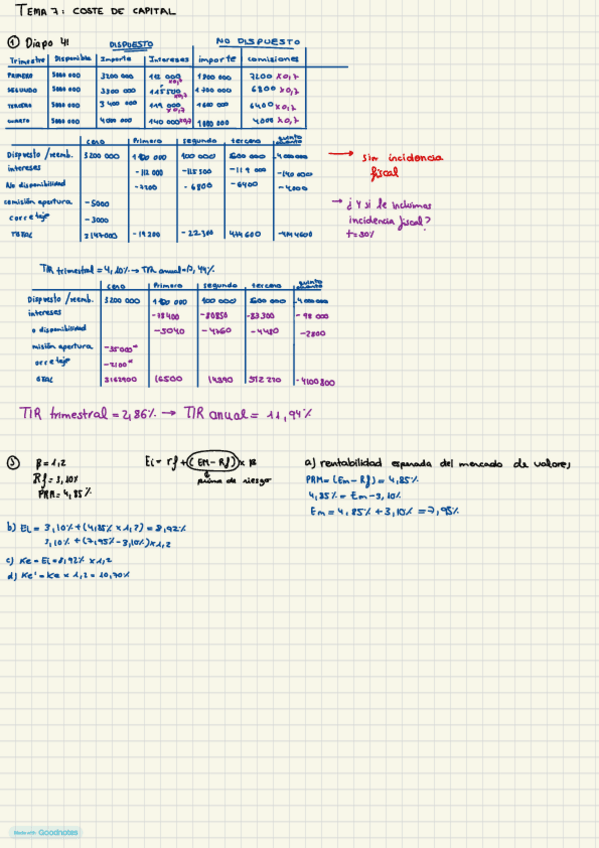 TEMA 7: COSTE DE CAPITAL
① Diapo 41 DISPUESTO NO DISPUESTO
Trimestre Disponible Importe Intereses importe comisiones
PRIMERO 5000 000 3200 000 112 000 x0,7 1 800 000 7200 x0,7
SEGUNDO 5000 000 3300 000 115 500 x0,7 1 700 000 6800 x0,7
TERCERO 5000 000 3 400 000 119 000 x0,7 1 600 000 6400 x0,7
CUARTO 5000 000 4000 000 140 000 x0,7 1000 000 4000 x0,7
cero Primero segundo tercero cuarto
Dispuesto/reemb. 3200 000 100 000 100 000 600 000 -4000000
intereses -112 000 -115 500 -119 000 -140 000
No disponibilidad -7200 -6800 -6400 -4000
comisión apertura -5000
corretaje -3000
TOTAL -19200 -22 300 474 600
→ Sin incidencia
fiscal
→ ¿Y si le incluimos
incidencia fiscal?
t=30%
TIR trimestral = 4,10% → TIR anual =
cero Primero segundo tercero cuarto
Dispuesto/reemb. 3200 000 100 000 100 000 600 000 -4000000
intereses -78400 -80850 -83300 -98 000
o disponibilidad -5040 -4760 -4480 -2800
misión apertura -35000*
orretaje -2100*
OTAL 3162900 16500 14390 512 220 -4100800
TIR trimestral = 2,86% → TIR anual = 11,94%
③ β = 1,2 Ei = rf + (EM - Rf) x β a) rentabilidad esperada del mercado de valores
Rf = 3,10% prima de riesgo
PRM = 4,85% PRM = (Em - Rf) = 4,85%
4,85% = Em - 3,10%
Em = 4,85% + 3,10% = 7,95%
b) Ei = 3,10% + (4,85% x 1,2) = 8,92%
3,10% + (7,95% - 3,10%) x 1,2
c) Ke = Ei = 8,92% x 1,2
d) Ke' = Ke x 1,2 = 10,70%
Made with Goodnotes